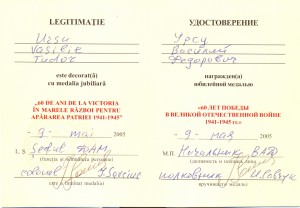 LEGITIMAȚIE
Ursu
Vasilie
Tudor
este decorat(ă)
cu medalia jubiliară
„60 DE ANI DE LA VICTORIA
ÎN MARELE RĂZBOI PENTRU
APĂRAREA PATRIEI 1941-1945”
9 mai 2005
L. Ș. Șeful
(funcția și semnătura persoanei
colonel
care a înmînat medalia)
УДОСТОВЕРЕНИЕ
Урсу
Василий
Федорович
награжден(а)
юбилейной медалью
«60 ЛЕТ ПОБЕДЫ
В ВЕЛИКОЙ ОТЕЧЕСТВЕННОЙ ВОЙНЕ
1941-1945 гг.»
9 мая 2005
М.П. Начальник
(должность и подпись лица
полковник
вручившего медаль)